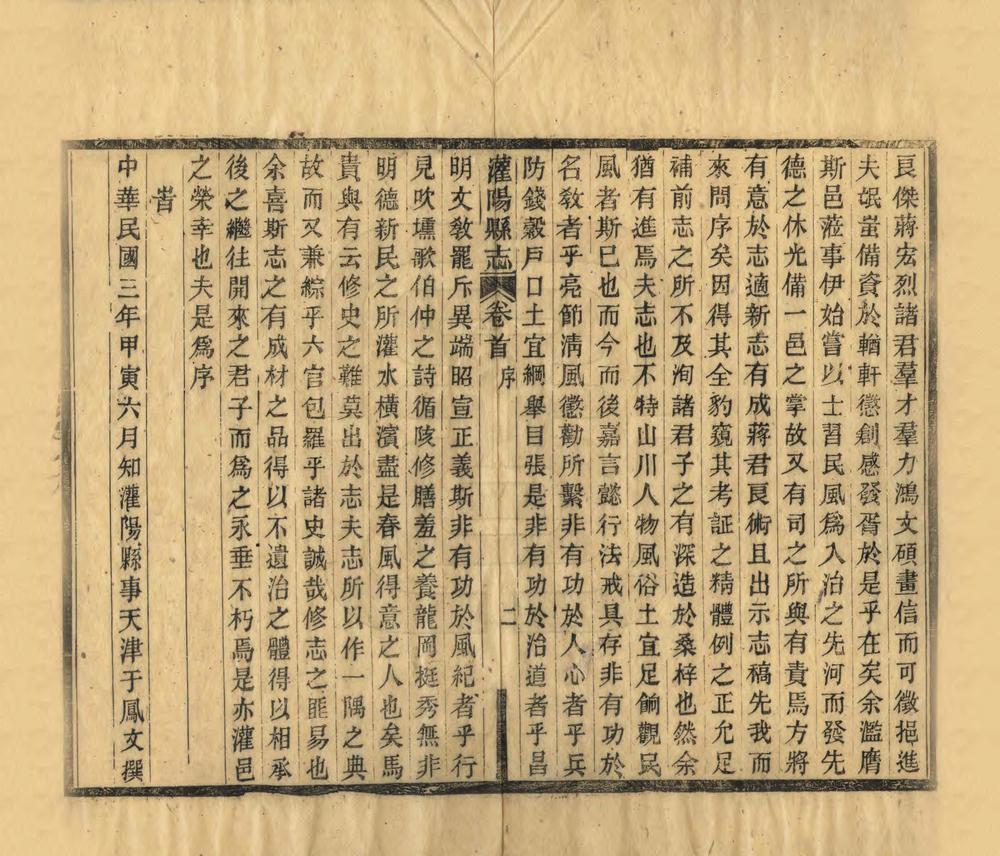 良傑蔣宏烈諸君羣才羣力鴻文碩畫信而可徵挹進
夫氓蚩備資於輶軒懲創感發胥於是乎在矣余濫膺
斯邑蒞事伊始嘗以士習民風爲入治之先河而發先
德之休光備一邑之掌故又有司之所與有責焉方將
有意於志適新志有成蔣君良術且出示志稿先我而
來問序矣因得其全豹窺其考証之精體例之正允足
補前志之所不及洵諸君子之有深造於桑梓也然余
猶有進焉夫志也不特山川人物風俗土宜足餉觀民
風者斯已也而今而後嘉言懿行法戒具存非有功於
名敎者乎亮節淸風懲勸所繫非有功於人心者乎兵
防錢穀戸口土宜綱舉目張是非有功於治道者乎昌
灌陽縣志 卷首 序 二
明文敎罷斥異端昭宣正義斯非有功於風紀者乎行
見吹壎歌伯仲之詩循陔修膳羞之養龍岡挺秀無非
明德新民之所灌水橫濱盡是春風得意之人也矣馬
貴與有云修史之難莫出於志夫志所以作一隅之典
故而又兼綜乎六官包羅乎諸史誠哉修志之匪易也
余喜斯志之有成材之品得以不遺治之體得以相承
後之繼往開來之君子而爲之永垂不朽焉是亦灌邑
之榮幸也夫是爲序
旹
中華民國三年甲寅六月知灌陽縣事天津于鳳文撰